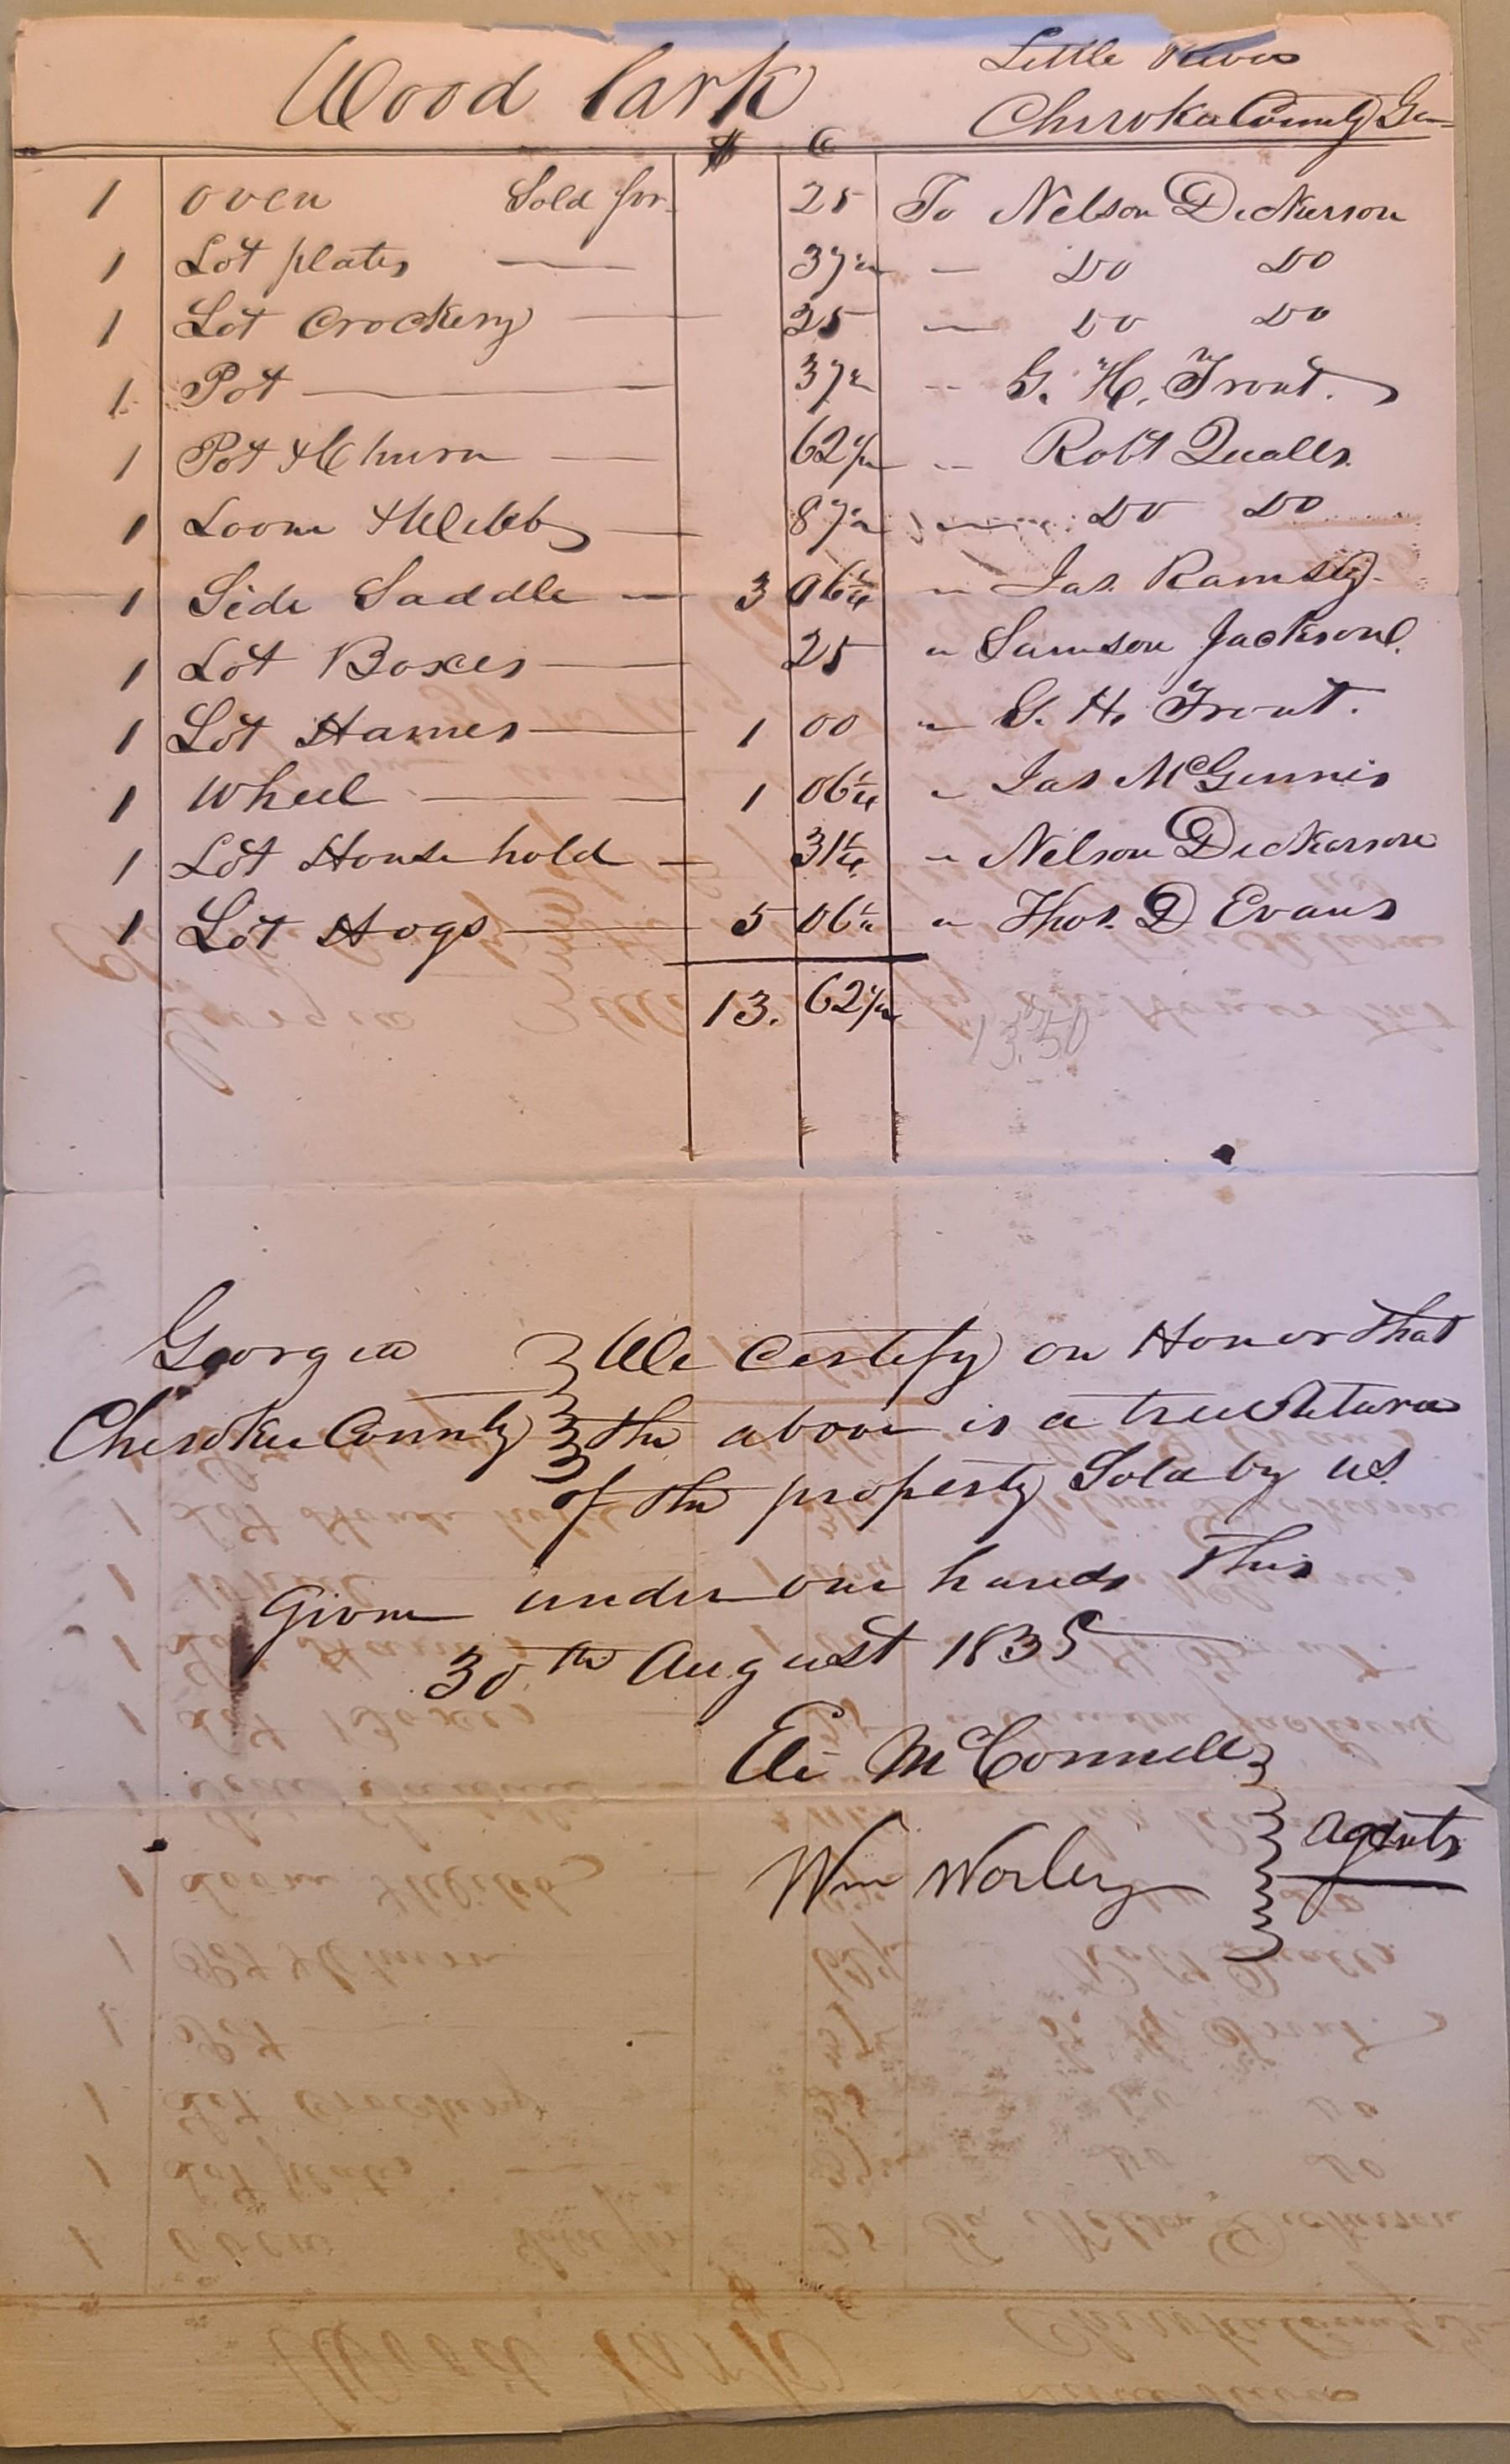 Wood Lark
Little River
Cherokee County Ga
$ C
1 oven Sold for 25 To Nelson Dickerson
1 Lot plates — 37½ — Do Do
1 Lot Crockery — 25 — Do Do
1 Pot — 37½ " G. H. Trout.
1 Pot & Churn — 62½ " Robt Qualls.
1 Loom & Webb — 87½ " Do Do
1 Side Saddle — 3 06¼ " Jas. Ramsey
1 Lot Boxes — 25 " Samson Jackson
1 Lot Hames — 1 00 " G. H. Trout.
1 Wheel — 1 06¼ " Jas McGinnis
1 Lot House hold — 31¼ " Nelson Dickerson
1 Lot Hogs — 5 06¼ " Thos. D Evans
13. 62½
13.50
Georgia We Certify on Honor that
Cherokee County the above is a true Return
of the property Sold by us.
Given under our hands This
30th August 1835
Eli McConnell
Wm Worley Agents